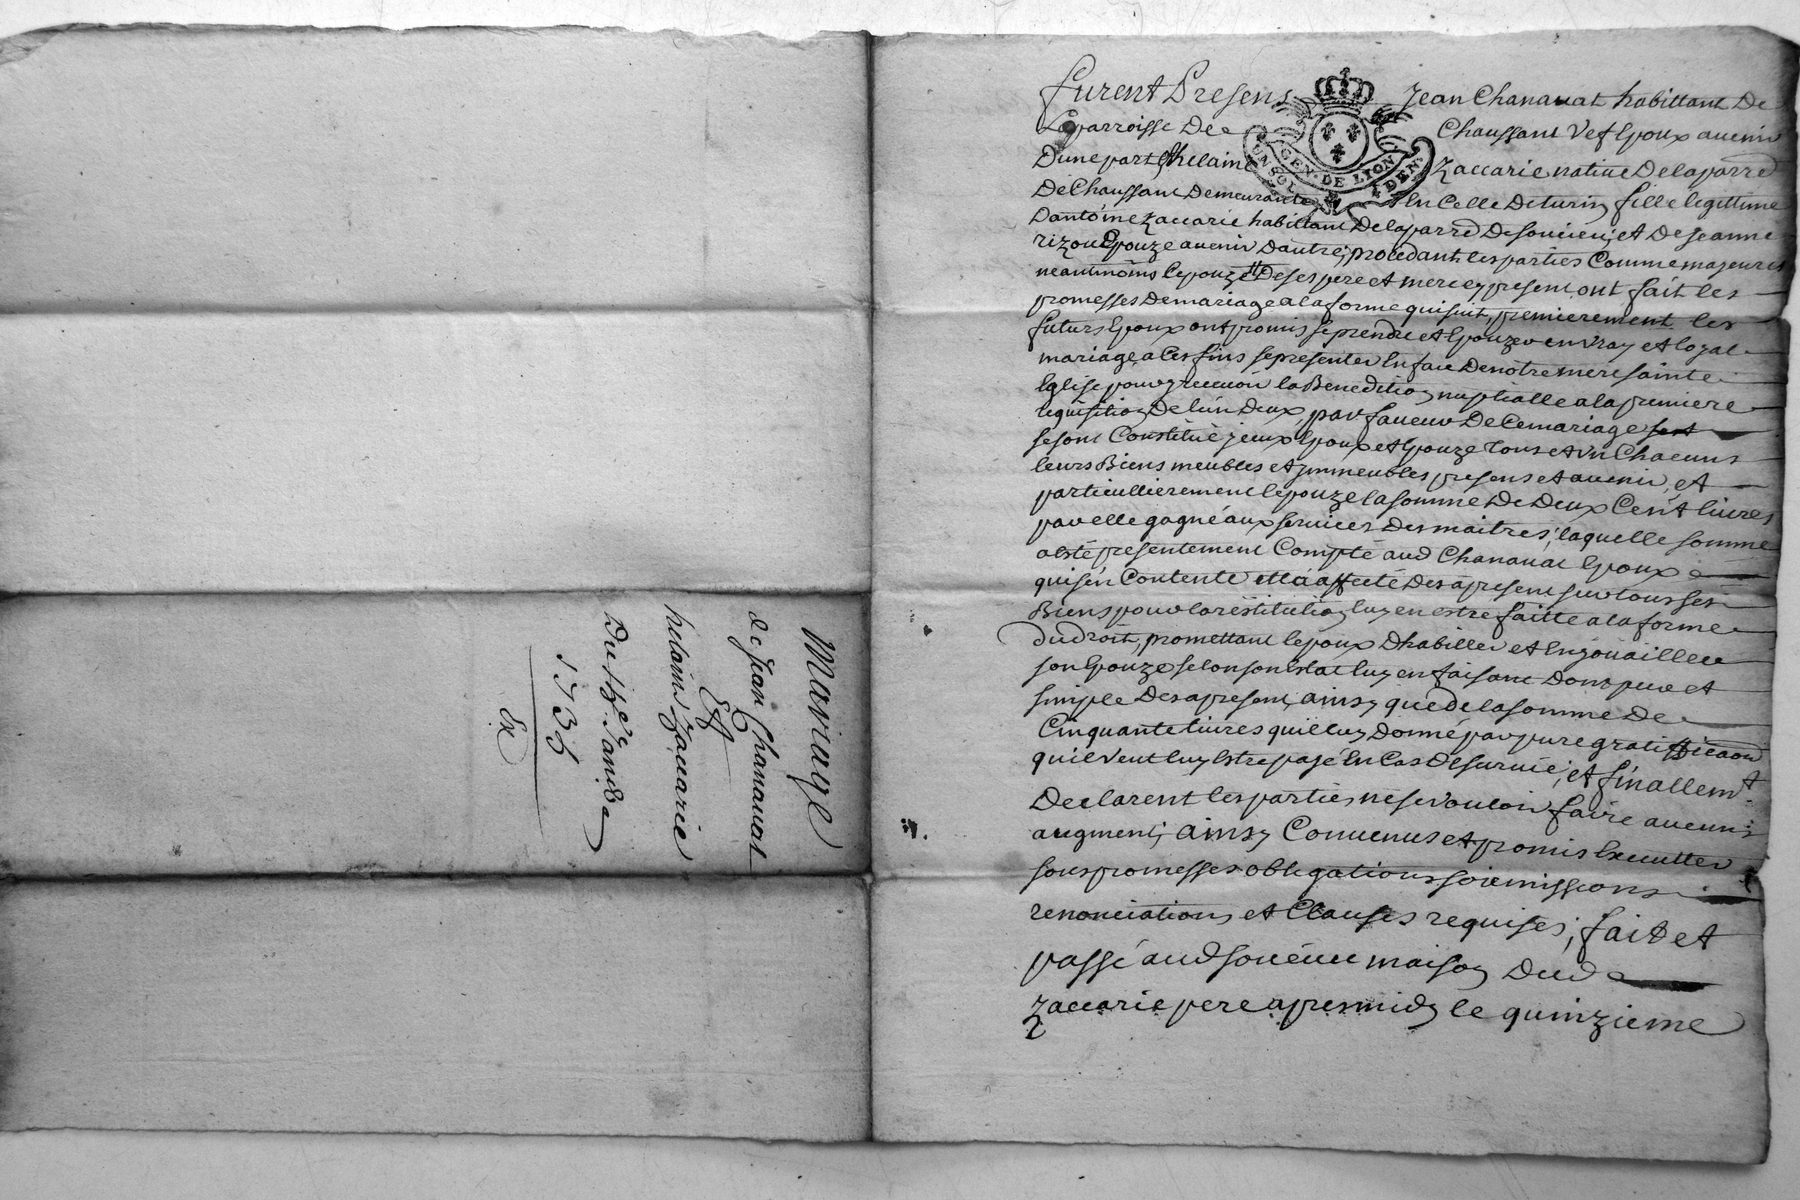 Mariage
de Jean Chanavat
Et
helaine Zaccarie
Du 15e Janv
1736
Ex
furent Presens Jean Chanavat habittant De
Laparroisse De Chaussant Vef Epoux avenir
Dune part & helaine Zaccarie native Delaparre
De Chaussant Demeurante En Celle Deturin fille legittime
Dantoine Zaccarie habittant Delaparre De soucieu; et De jeanne
rizou Epouze avenir Dautre; procedant lesparties Comme majeures
neantmoins lepouze De ses pere et mere cy present ont fait les
promesses Demariage alaforme quisuit, premierement les
futurs Epoux ont promis se prendre et Epouzer en vray et loyal
mariage, a Ces fins sepresenter En face Denotre mere sainte
Eglise pour y recevoir la Benedition nuptialle alapremiere
requisition De lun Deux, par faveur De Cemariage
sesont Constitué jceux Epoux et Epouze Tous et Un Chacuns
leurs Biens meubles et jmmeubles presens et avenir, et
particullierement lepouze lasomme De Deux Cent livres
par elle gagné aux services Des maitres; laquelle somme
a esté presentement Compté aud Chanavat Epoux
quisen Contente et la affecté Des apresent sur tous ses
Biens pour la restitution luy en estre faitte alaforme
Dudroit, promettant lepoux Dhabiller et Enjoüailler
son Epouze selon son Estat luy en faisant Don pur et
simple Des apresent, ainsy que de lasomme De
Cinquante livres quil luy Donne par pure gratiffica͠on
quil veut luy Estre payé En Cas De survie; et finallemt
Declarent les parties ne se vouloir faire aucuns
augment; ainsy Convenus et promis Executter
sous promesses obligations soumissions
renonciations et Clauses requises; fait et
passé aud soucieu maison Dud
Zaccarie pere apresmidy le quinzieme
GEN. DE LION
UN SOL 4 DEN.